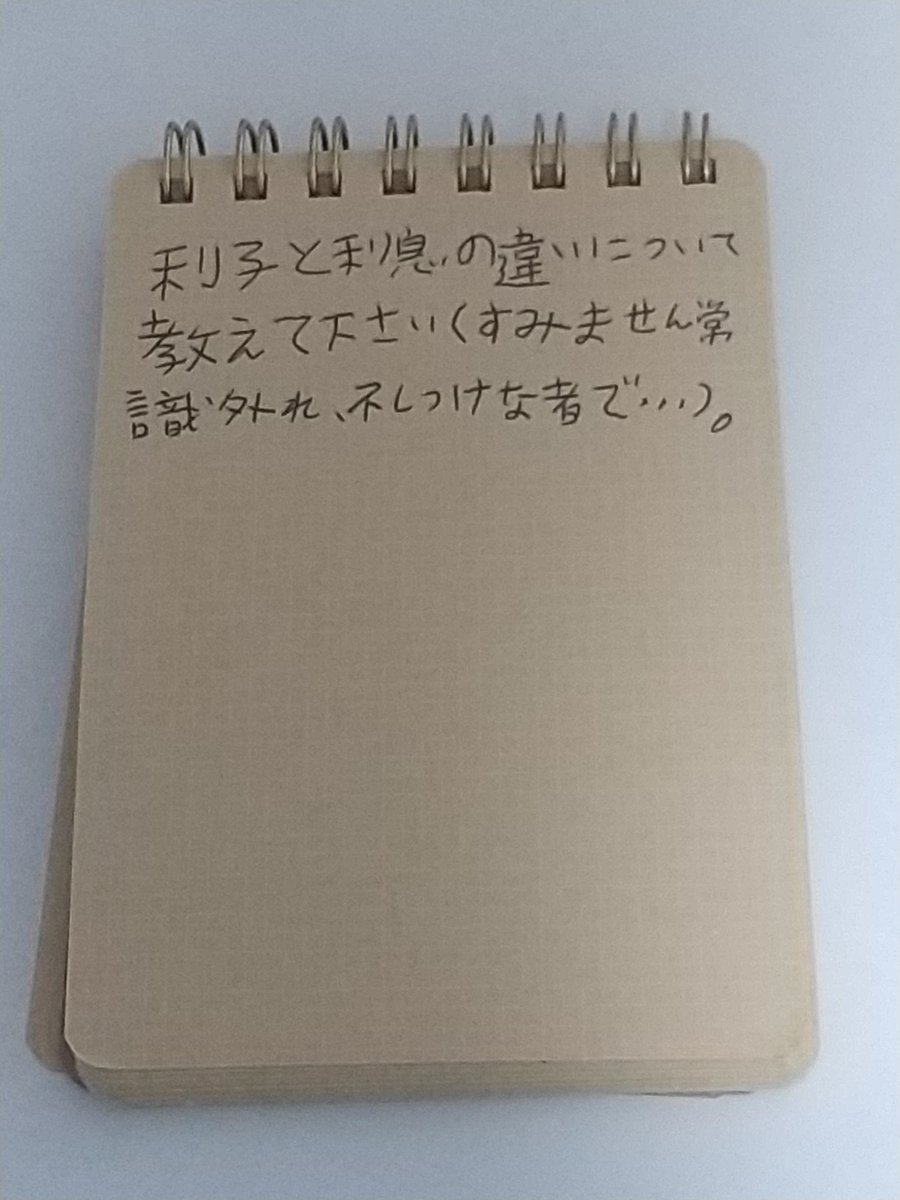 利子と利息の違いについて
教えて下さい(すみません常
識外れ、不しつけな者で…)。